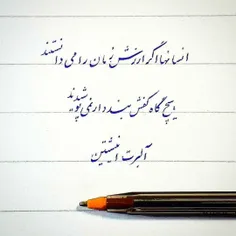 انسانها اگر ارزش زمان را می دانستند
هیچ گاه کفش بند دار نمی پوشیدند
آلبرت انیشتین